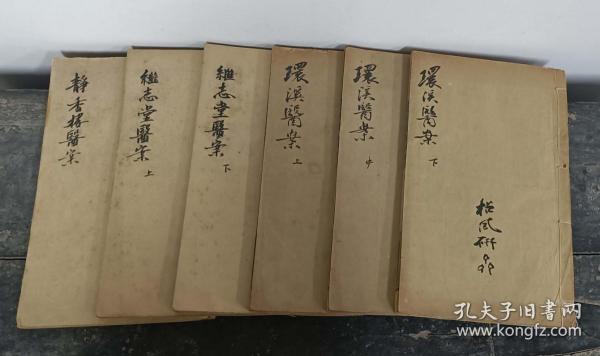 靜香樓醫案
繼志堂醫案
上
繼志堂醫案
下
環溪醫案
上
環溪醫案
中
環溪醫案
下
孔夫子旧书网
www.kongfz.com